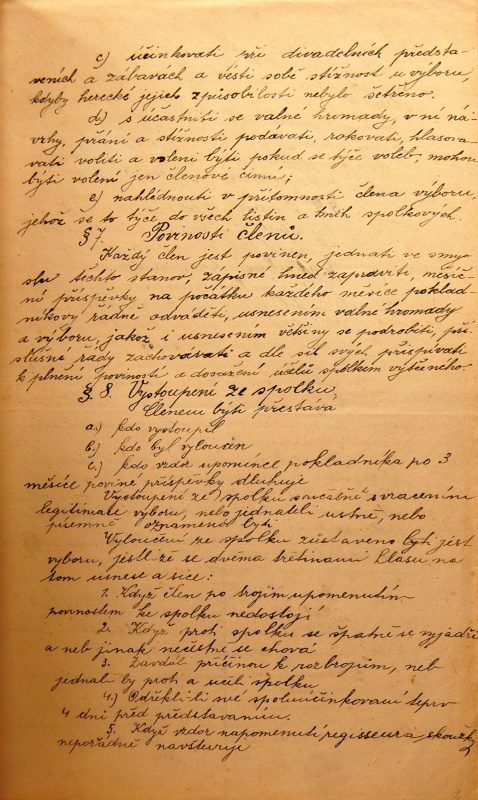 c) účinkovati při divadelních předsta-
veních a zábavach a vésti sobě stížnost u výboru,
kdyby herecké jejich způsobilosti nebylo šetřeno.
d) súčastniti se valné hromady, v ní ná-
vrhy, přání a stížnosti podávati, rokovati, hlaso-
vati voliti a voleni býti pokud se týče voleb, mohou
býti voleni jen členové činní;
e) nahlédnouti v přítomnosti člena výboru,
jehož se to týče do všech listin a knih spolkových.
§ 7. Povinosti členů.
Každý člen jest povinen, jednati ve smy-
slu těchto stanov, zápisné hned zapraviti, měsíč-
ní příspěvky na počátku každého měsíce poklad-
níkovy řádně odváděti, usnesením valné hromady
a výboru, jakož i usnesením většiny se podrobiti, pří-
slušné řády zachovávati a dle sil svých přispívati
k plnění povinností a dosažení účelů spolkem vytčeného.
§. 8. Vystoupení ze spolku.
Členem býti přestává
a.) kdo vystoupil
b.) kdo byl vyloučen
c.) kdo vzdor upomínce pokladníka po 3
měsíce poviné příspěvky dluhuje
Vystoupení ze spolku současně s vracením
legitimace výboru, nebo jednateli ustně, nebo
písemně oznámeno býti
Vyloučení ze spolku zůstaveno býti jest
výboru, jestliže se dvěma třetinami hlasů na
tom usnese a sice:
1. Když člen po trojím upomenutím
povinostem ke spolku nedostojí
2. Když proti spolku se špatně se vyjádří
a neb jinak nečestně se chová
3. Zavdal příčinou k rozbrojům, neb
jednal by proti a účeli spolku
4.) Odřekl-li své spoluúčinkování teprv
4 dni před představením.
5. Když vzdor napomenutí regisseura, zkoušky
nepořádně navštěvuje